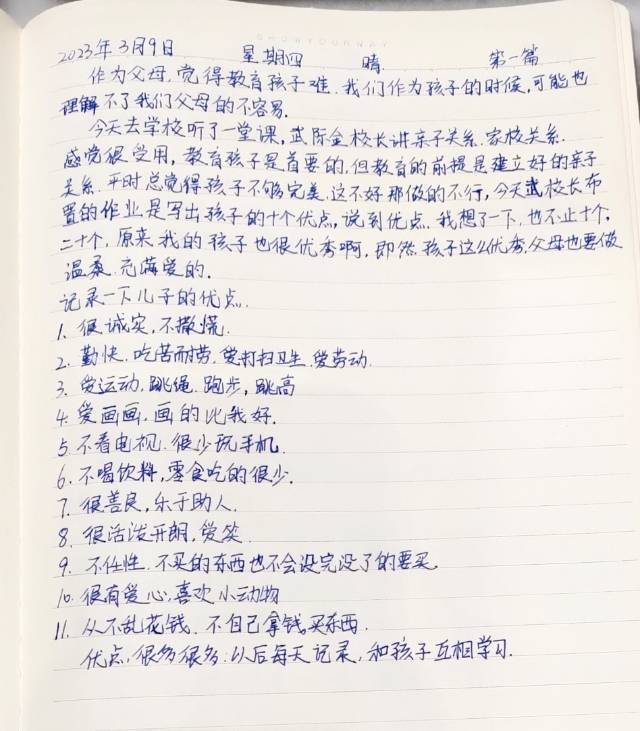 2023年3月9日 星期四 晴 第一篇
作为父母,觉得教育孩子难.我们作为孩子的时候,可能也
理解不了我们父母的不容易.
今天去学校听了一堂课,武际金校长讲亲子关系.家校关系.
感觉很受用,教育孩子是首要的,但教育的前提是建立好的亲子
关系.平时总觉得孩子不够完美.这不好那做的不行,今天武校长布
置的作业是写出孩子的十个优点,说到优点.我想了一下,也不止十个.
二十个,原来我的孩子也很优秀啊,即然孩子这么优秀.父母也要做
温柔.充满爱的.
记录一下儿子的优点.
1. 很诚实,不撒慌.
2. 勤快.吃苦耐劳.爱打扫卫生.爱劳动
3. 爱运动.跳绳.跑步,跳高
4. 爱画画.画的比我好.
5. 不看电视.很少玩手机.
6. 不喝饮料,零食吃的很少.
7. 很善良,乐于助人.
8. 很活泼开朗,爱笑.
9. 不任性.不买的东西也不会没完没了的要买.
10. 很有爱心,喜欢小动物
11. 从不乱花钱.不自己拿钱买东西.
优点,很多很多.以后每天记录,和孩子互相学习.